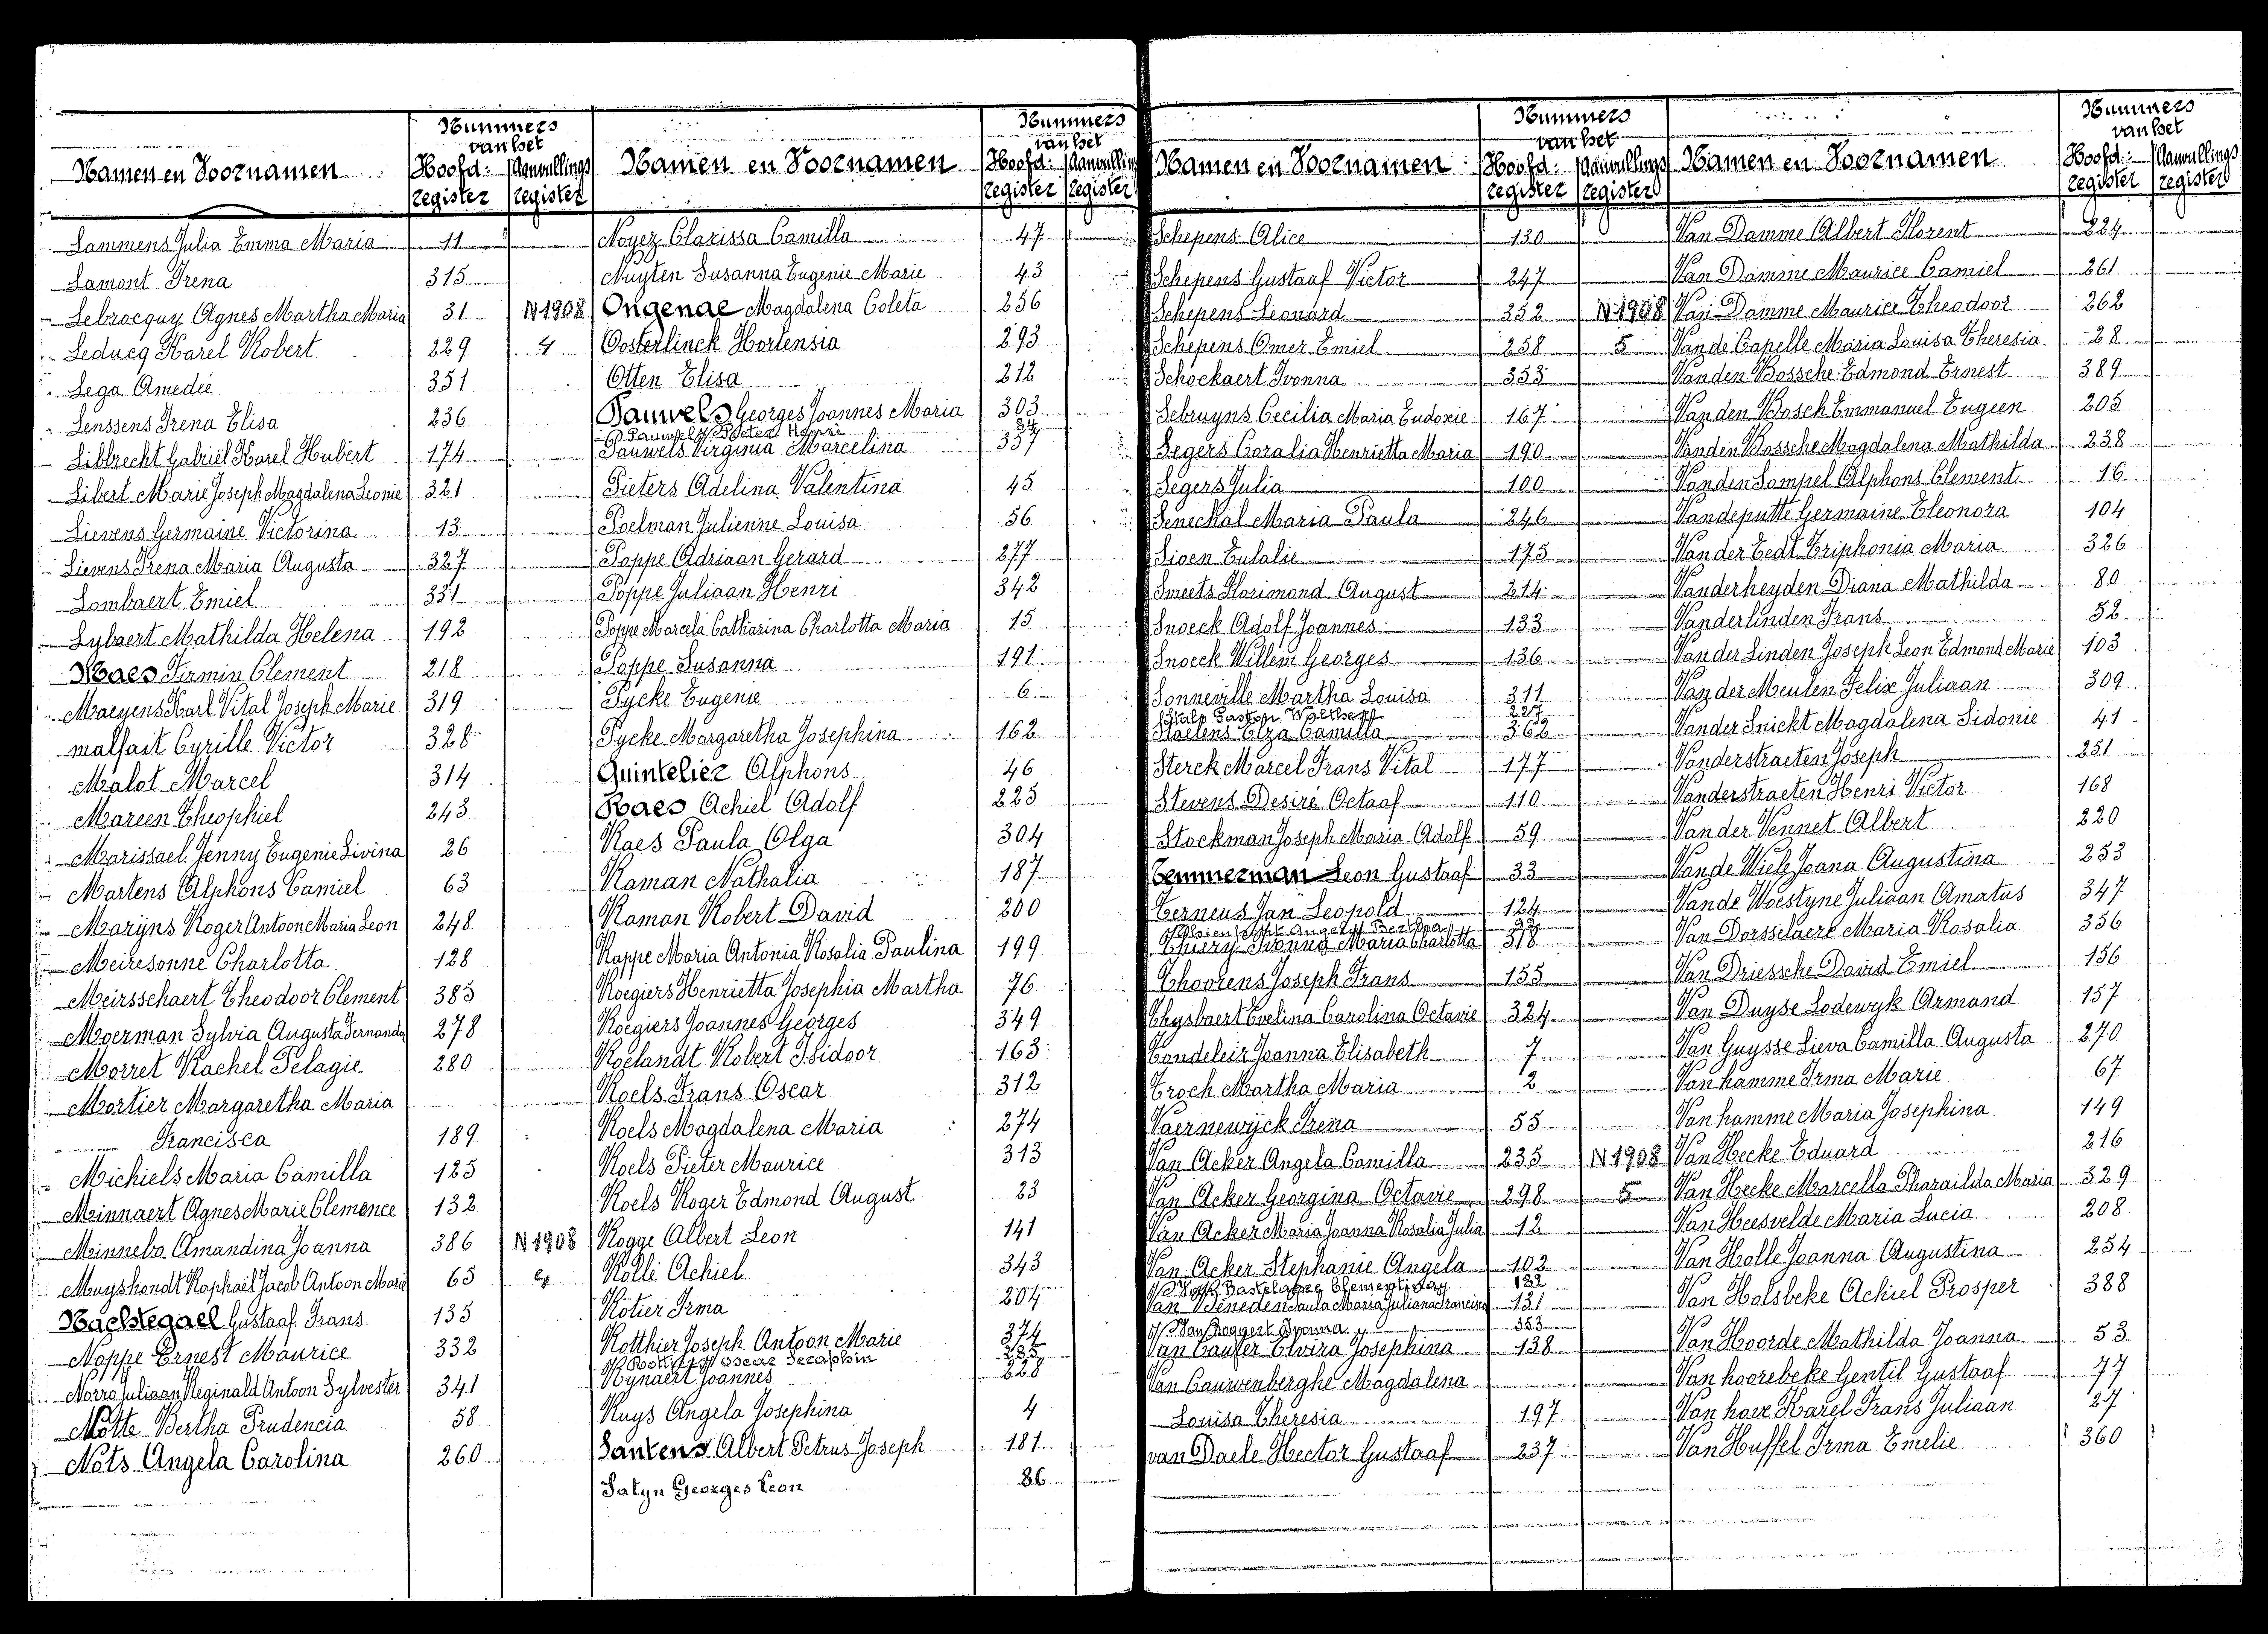 Nummers
van het
Namen en Voornamen Hoofd: Aanvullings
register register
Lammens Julia Emma Maria 11
Lamont Irena 315
Lebrocquy Agnes Martha Maria 31 N 1908
Leducq Karel Robert 229 4
Lega Amedie 351
Lenssens Irena Elisa 236
Libbrecht Gabriël Karel Hubert 174
Libert Marie Joseph Magdalena Leonie 321
Lievens Germaine Victorina 13
Lievens Irena Maria Augusta 327
Lombaert Emiel 331
Lybaert Mathilda Helena 192
Maes Firmin Clement 218
Maeyens Karl Vital Joseph Marie 319
malfait Cyrille Victor 328
Malot Marcel 314
Mareen Theophiel 243
Marissael Jenny Eugenie Livina 26
Martens Alphons Camiel 63
Marÿns Roger Antoon Maria Leon 248
Meiresonne Charlotta 128
Meirsschaert Theodoor Clement 385
Moerman Sylvia Augusta Fernanda 278
Morret Rachel Pelagie 280
Mortier Margaretha Maria
Francisca 189
Michiels Maria Camilla 125
Minnaert Agnes Marie Clemence 132
Minnebo Amandina Joanna 386 N 1908
Muyshondt Raphaël Jacob Antoon Marie 65
Nachtegael Gustaaf Frans 135
Noppe Ernest Maurice 332
Norro Juliaan Reginald Antoon Sylvester 341
Notte Bertha Prudencia 58
Nots Angela Carolina 260
Nummers
van het
Namen en Voornamen Hoofd: Aanvullin
register register
Noyez Clarissa Camilla 47
Nuyten Susanna Eugenie Marie 43
Ongenae Magdalena Coleta 256
Oosterlinck Hortensia 293
Otten Elisa 212
Pauwels Georges Joannes Maria 303
Pauwels Pieter Henri 84
Pauwels Virginia Marcelina 357
Pieters Adelina Valentina 45
Poelman Julienne Louisa 56
Poppe Adriaan Gerard 277
Poppe Juliaan Henri 342
Poppe Marcela Catharina Charlotta Maria 15
Poppe Susanna 191
Pycke Eugenie 6
Pycke Margaretha Josephina 162
Quintelier Alphons 46
Raes Achiel Adolf 225
Raes Paula Olga 304
Raman Nathalia 187
Raman Robert David 200
Rappe Maria Antonia Rosalia Paulina 199
Roegiers Henrietta Josephia Martha 76
Roegiers Joannes Georges 349
Roelandt Robert Isidoor 163
Roels Frans Oscar 312
Roels Magdalena Maria 274
Roels Pieter Maurice 313
Roels Roger Edmond August 23
Rogge Albert Leon 141
Rolli Achiel 343
Rotier Irma 204
Rotthier Joseph Antoon Marie 374
Oscar Seraphin 285
Rynaert Joannes 228
Ruys Angela Josephina 4
Santens Albert Petrus Joseph 181
Satyn Georges Leon 86
Nummers
van het
Namen en Voornamen Hoofd: Aanvullings
register register
Schepens Alice 130
Schepens Gustaaf Victor 247
Schepens Leonard 352 N 1908
Schepens Omer Emiel 258 5
Schockaert Ivonna 353
Sebruyns Cecilia Maria Eudoxie 167
Segers Coralia Henrietta Maria 190
Segers Julia 100
Seneckal Maria Paula 246
Sioen Eulalie 175
Smeets Florimond August 214
Snoeck Adolf Joannes 133
Snoeck Willem Georges 136
Sonneville Martha Louisa 311
Stalp Gaston Walther 227
Staelens Elza Camilla 362
Sterck Marcel Frans Vital 177
Stevens Desiré Octaaf 110
Stockman Joseph Maria Adolf 59
Temmerman Leon Gustaaf 33
Terneus Jan Leopold 124
Angela Bertha
Thiery Ivonna Maria Charlotta 318
Thoorens Joseph Frans 155
Thysbaert Evelina Carolina Octavie 324
Tondeleir Joanna Elisabeth 7
Troch Martha Maria 2
Vaernewÿck Irena 55
Van Acker Angela Camilla 235 N 1908
Van Acker Georgina Octavie 298 5
Van Acker Maria Joanna Rosalia Julia 12
Van Acker Stephanie Angela 102
Bastelaere Clementina 182
Van Beneden Paula Maria Juliana Francisca 131
Van Boggert Ivonna 353
Van Cauter Elvira Josephina 138
Van Cauwenberghe Magdalena
Louisa Theresia 197
van Daele Hector Gustaaf 237
Nummers
van het
Namen en Voornamen Hoofd: Aanvullings
register register
Van Damme Albert Florent 224
Van Damme Maurice Camiel 261
Van Damme Maurice Theodoor 262
Van de Capelle Maria Louisa Theresia 28
Van den Bossche Edmond Ernest 389
Van den Bosch Emmanuel Eugeen 205
Van den Bossche Magdalena Mathilda 238
Van den Sompel Alphons Clement 16
Vandeputte Germaine Eleonora 104
Van der Eedt Triphonia Maria 326
Vanderheyden Diana Mathilda 80
Vanderlinden Frans 52
Van der Linden Joseph Leon Edmond Marie 103
Van der Meulen Felix Juliaan 309
Vander Snickt Magdalena Sidonie 41
Vanderstraeten Joseph 251
Vanderstraeten Henri Victor 168
Van der Vennet Albert 220
Van de Wiele Joana Augustina 253
Van de Woestyne Juliaan Amatus 347
Van Dorsselaere Maria Rosalia 356
Van Driessche David Emiel 156
Van Duyse Lodewyk Armand 157
Van Guysse Lieva Camilla Augusta 270
Van hamme Irma Marie 67
Van hamme Maria Josephina 149
Van Hecke Eduard 216
Van Hecke Marcella Pharaïlda Maria 329
Van Heesvelde Maria Lucia 208
Van Holle Joanna Augustina 254
Van Holsbeke Achiel Prosper 388
Van Hoorde Mathilda Joanna 53
Van hoorebeke Gentil Gustaaf 77
Van hove Karel Frans Juliaan 27
Van Huffel Irma Emelie 360